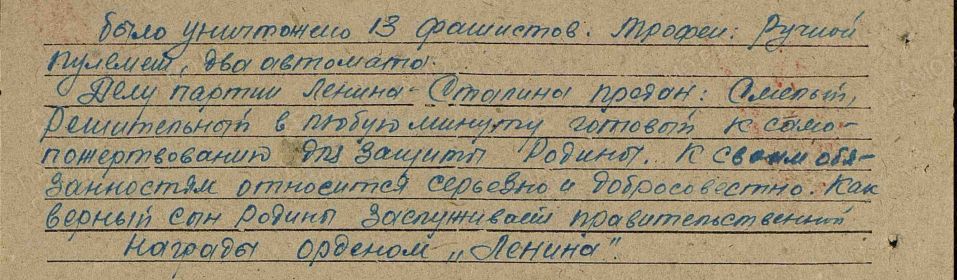 было уничтожено 13 фашистов. Трофеи: Ручной
пулемет, два автомата.
Делу партии Ленина-Сталина предан: Смелый,
Решительный в любую минуту готовый к само-
пожертвованию для защиты Родины. К своим обя-
занностям относится серьезно и добросовестно. Как
верный сын Родины заслуживает правительственной
награды орденом „Ленина".